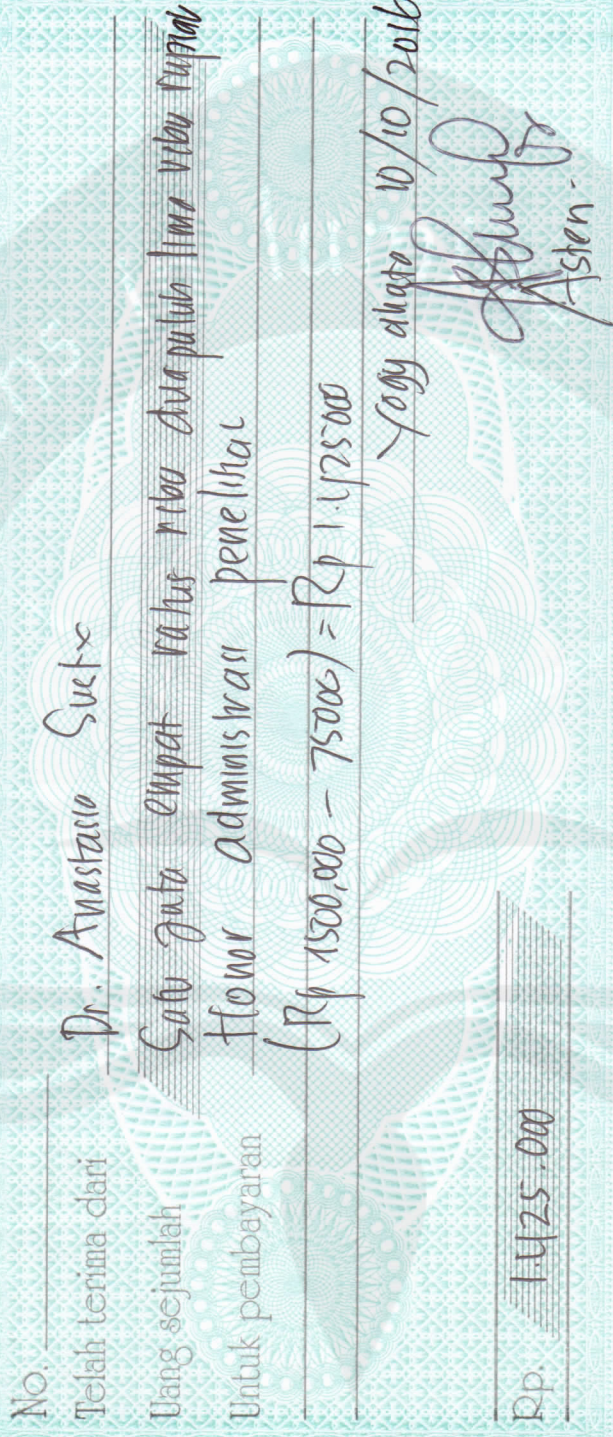 No.
Telah terima dari Dr. Anastasia
Uang sejumlah Satu juta empat ratus ribu dua puluh lima ribu rupiah
Untuk pembayaran Honor administrasi
(Rp 1500,000 - 75000) = Rp 1.425000
Yogyakarta 10/10/2016
Rp. 1.425.000
Asten.